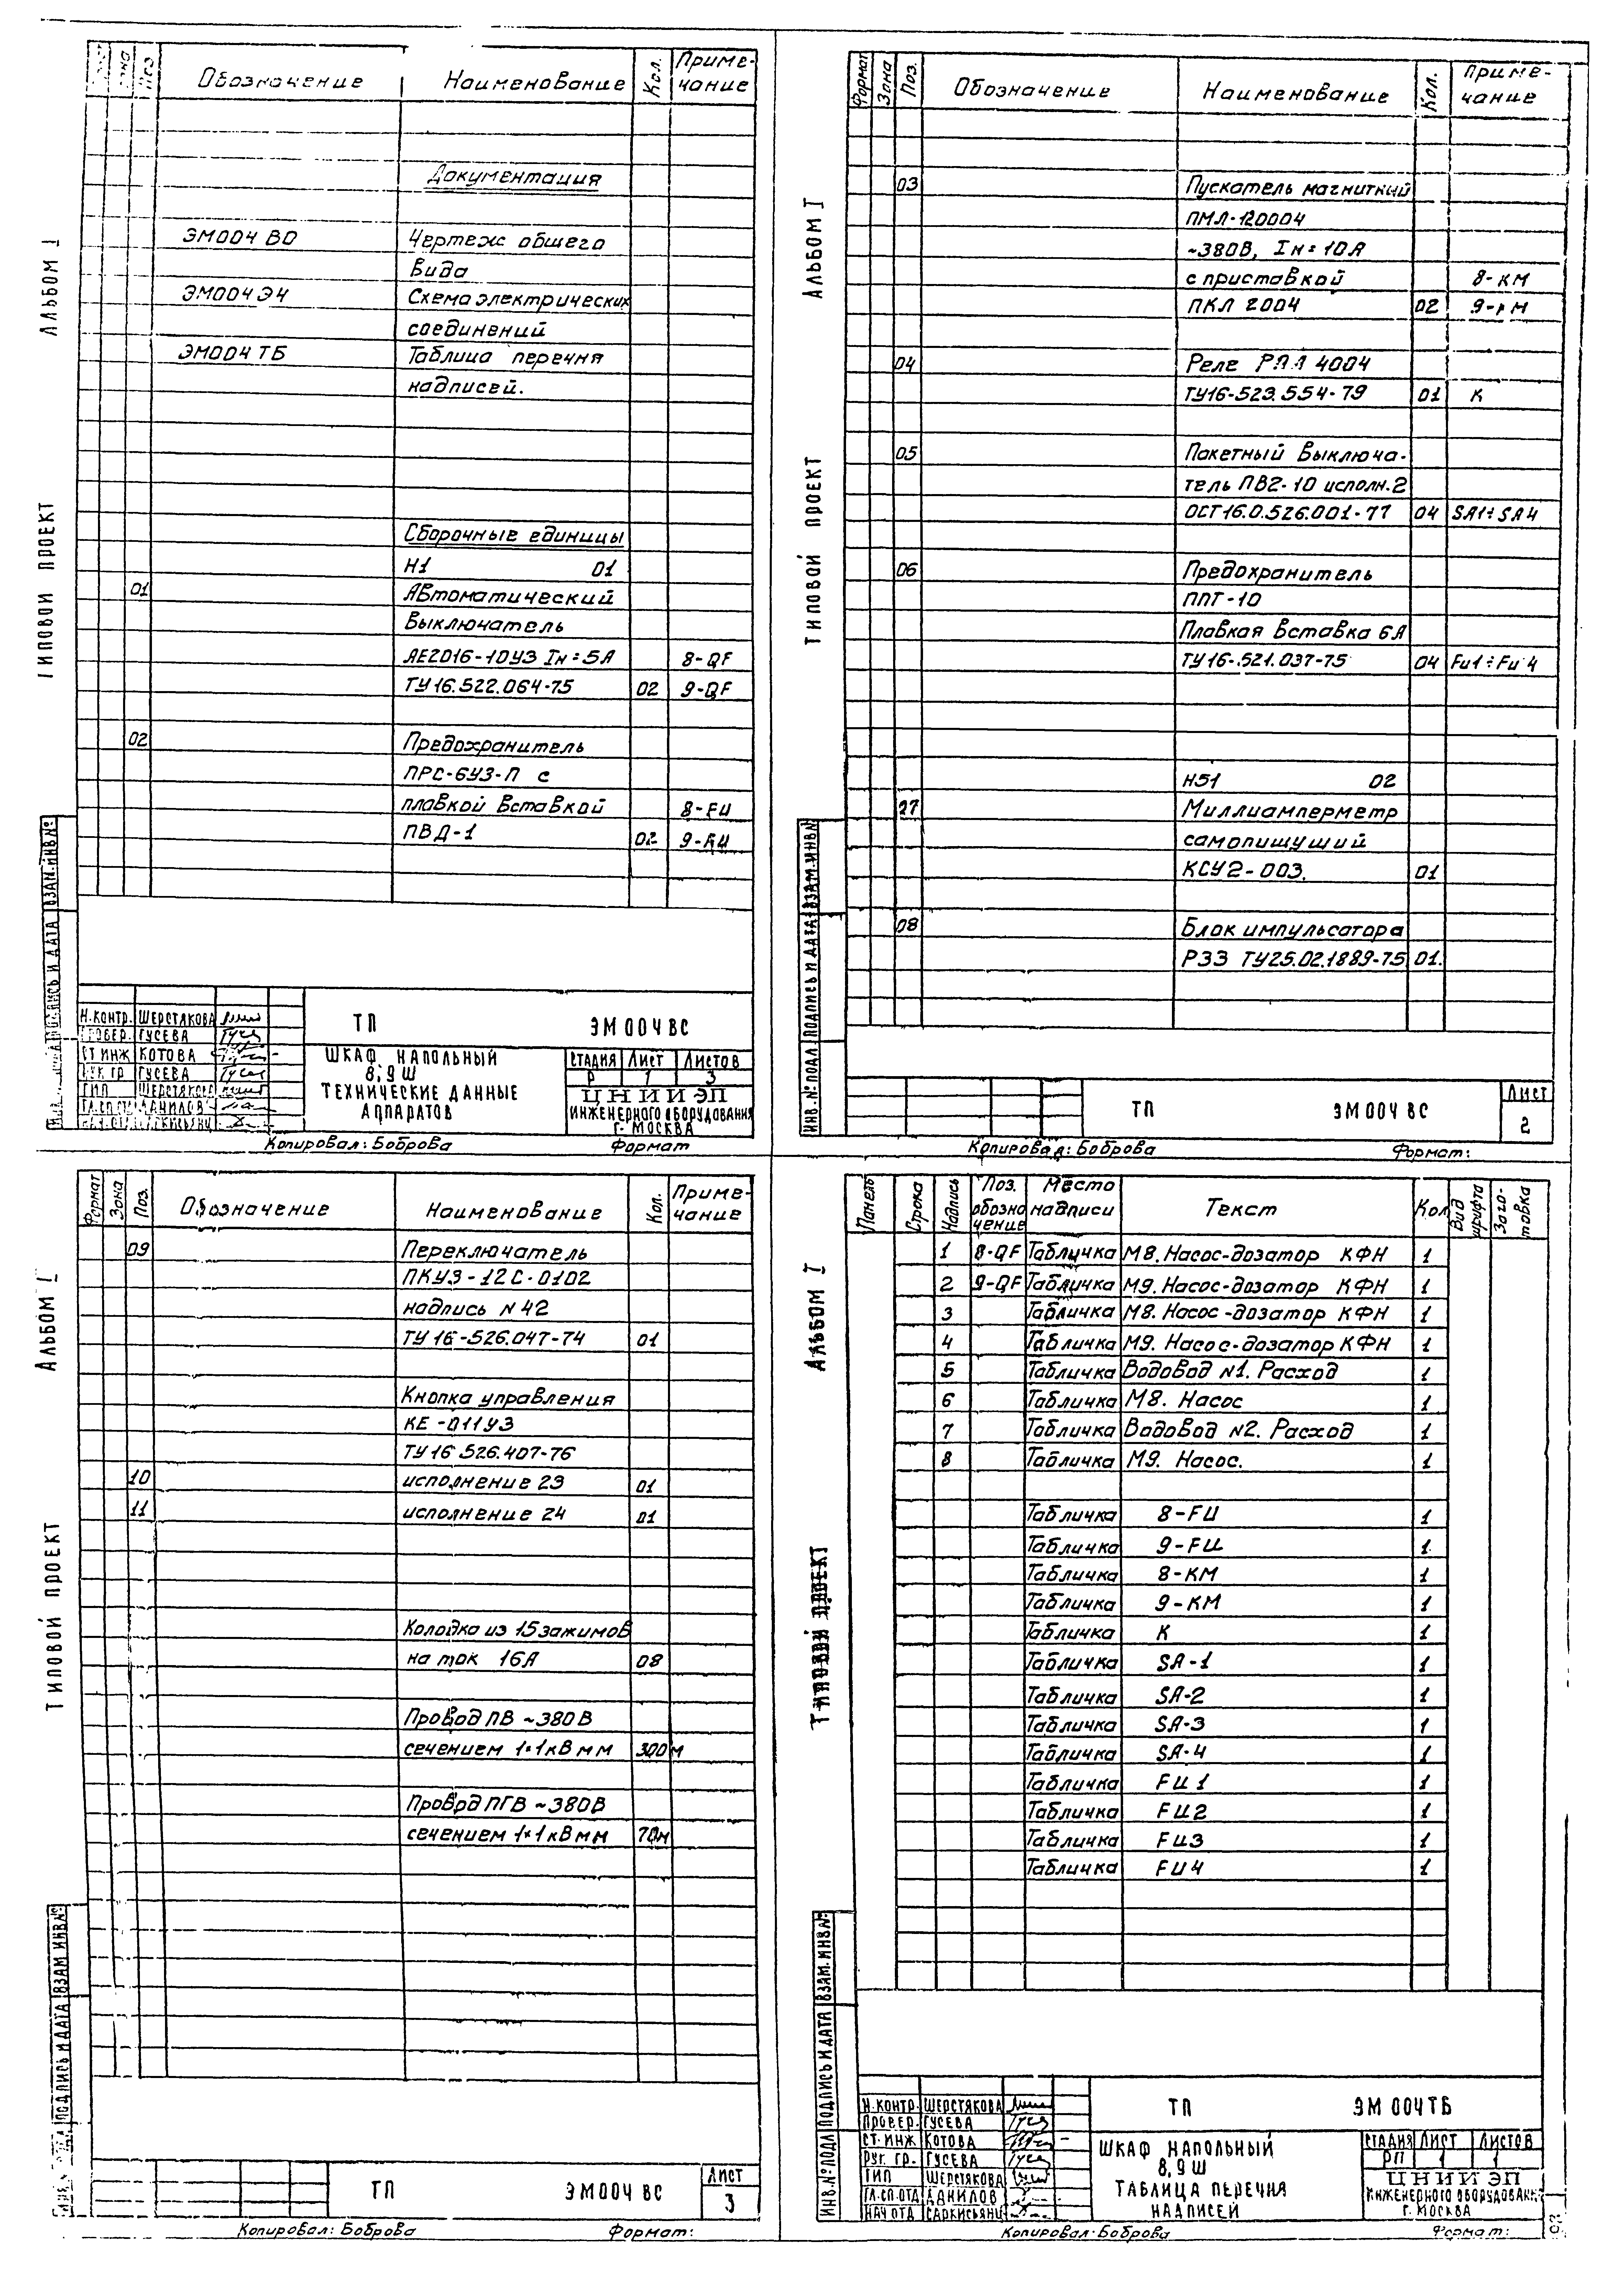 Альбом I
Типовой проект
Поз Обозначение Наименование Кол. Приме-
чание
Документация
ЭМ004 ВО Чертеж общего
вида
ЭМ004 Э4 Схема электрических
соединений
ЭМ004 ТБ Таблица перечня
надписей.
Сборочные единицы
Н1 01
01 Автоматический
выключатель
АЕ2016-10У3 Iн=5А 8-QF
ТУ16.522.064-75 02 9-QF
02 Предохранитель
ПРС-6У3-П с
плавкой вставкой 8-FU
ПВД-1 02 9-FU
Взам.инв.№
Подпись и дата
Н.контр. Шерстякова
Провер. Гусева
Ст инж Котова
Рук гр Гусева
ГИП Шерстякова
Гл.сп.от Данилов
ТП ЭМ 004 ВС
Шкаф напольный
8,9 Ш
Технические данные
аппаратов
Стадия Лист Листов
Р 1 3
ЦНИИЭП
инженерного оборудования
г. Москва
Копировал: Боброва Формат
Альбом I
Типовой проект
Формат Зона Поз. Обозначение Наименование Кол. Приме-
чание
03 Пускатель магнитный
ПМЛ-120004
~380В, Iн=10А
с приставкой 8-КМ
ПКЛ 2004 02 9-КМ
04 Реле РПЛ 4004
ТУ16-523.554-79 01 К
05 Пакетный выключа-
тель ПВ2-10 исполн.2
ОСТ16.0.526.001-77 04 SA1÷SA4
06 Предохранитель
ППТ-10
Плавкая вставка 6А
ТУ16-.521.037-75 04 Fu1÷Fu4
Н51 02
27 Миллиамперметр
самопишущий
КСУ2-003. 01
08 Блок импульсатора
РЭЗ ТУ25.02.1889-75 01.
Инв.№ подл Подпись и дата Взам.инв.№
ТП ЭМ 004 ВС Лист
2
Копировал: Боброва Формат:
Альбом I
Типовой проект
Формат Зона Поз. Обозначение Наименование Кол. Приме-
чание
09 Переключатель
ПКУ3-12С-0102
надпись N 42
ТУ 16-526.047-74 01
Кнопка управления
КЕ-011У3
ТУ 16 526.407-76
10 исполнение 23 01
11 исполнение 24 01
Колодка из 15 зажимов
на ток 16А 08
Провод ПВ ~380В
сечением 1×1кв мм 300м
Провод ПГВ ~380В
сечением 1×1кв мм 70м
Подпись и дата Взам инв.№
ТП ЭМ004 ВС Лист
3
Копировал: Боброва Формат:
Альбом I
Типовой проект
Панель Строка Надпись Поз.
обозна
чение Место
надписи Текст Кол Вид
шрифта Заго-
товка
1 8-QF Табличка М8. Насос-дозатор КФН 1
2 9-QF Табличка М9. Насос-дозатор КФН 1
3 Табличка М8. Насос-дозатор КФН 1
4 Табличка М9. Насос-дозатор КФН 1
5 Табличка Водовод N1. Расход 1
6 Табличка М8. Насос 1
7 Табличка Водовод N2. Расход 1
8 Табличка М9. Насос. 1
Табличка 8-FU 1
Табличка 9-FU 1
Табличка 8-КМ 1
Табличка 9-КМ 1
Табличка К 1
Табличка SA-1 1
Табличка SA-2 1
Табличка SA-3 1
Табличка SA-4 1
Табличка FU 1 1
Табличка FU2 1
Табличка FU3 1
Табличка FU4 1
Инв.№ подл Подпись и дата Взам.инв.№
Н.контр. Шерстякова
Провер. Гусева
Ст.инж Котова
Рук. гр. Гусева
ГИП Шерстякова
Гл.сп.отд Данилов
Нач отд Саркисьянц
ТП ЭМ 004ТБ
Шкаф напольный
8,9 Ш
Таблица перечня
надписей
Стадия Лист Листов
РП 1 1
ЦНИИЭП
инженерного оборудован.
г. Москва
Копировал: Боброва Формат: